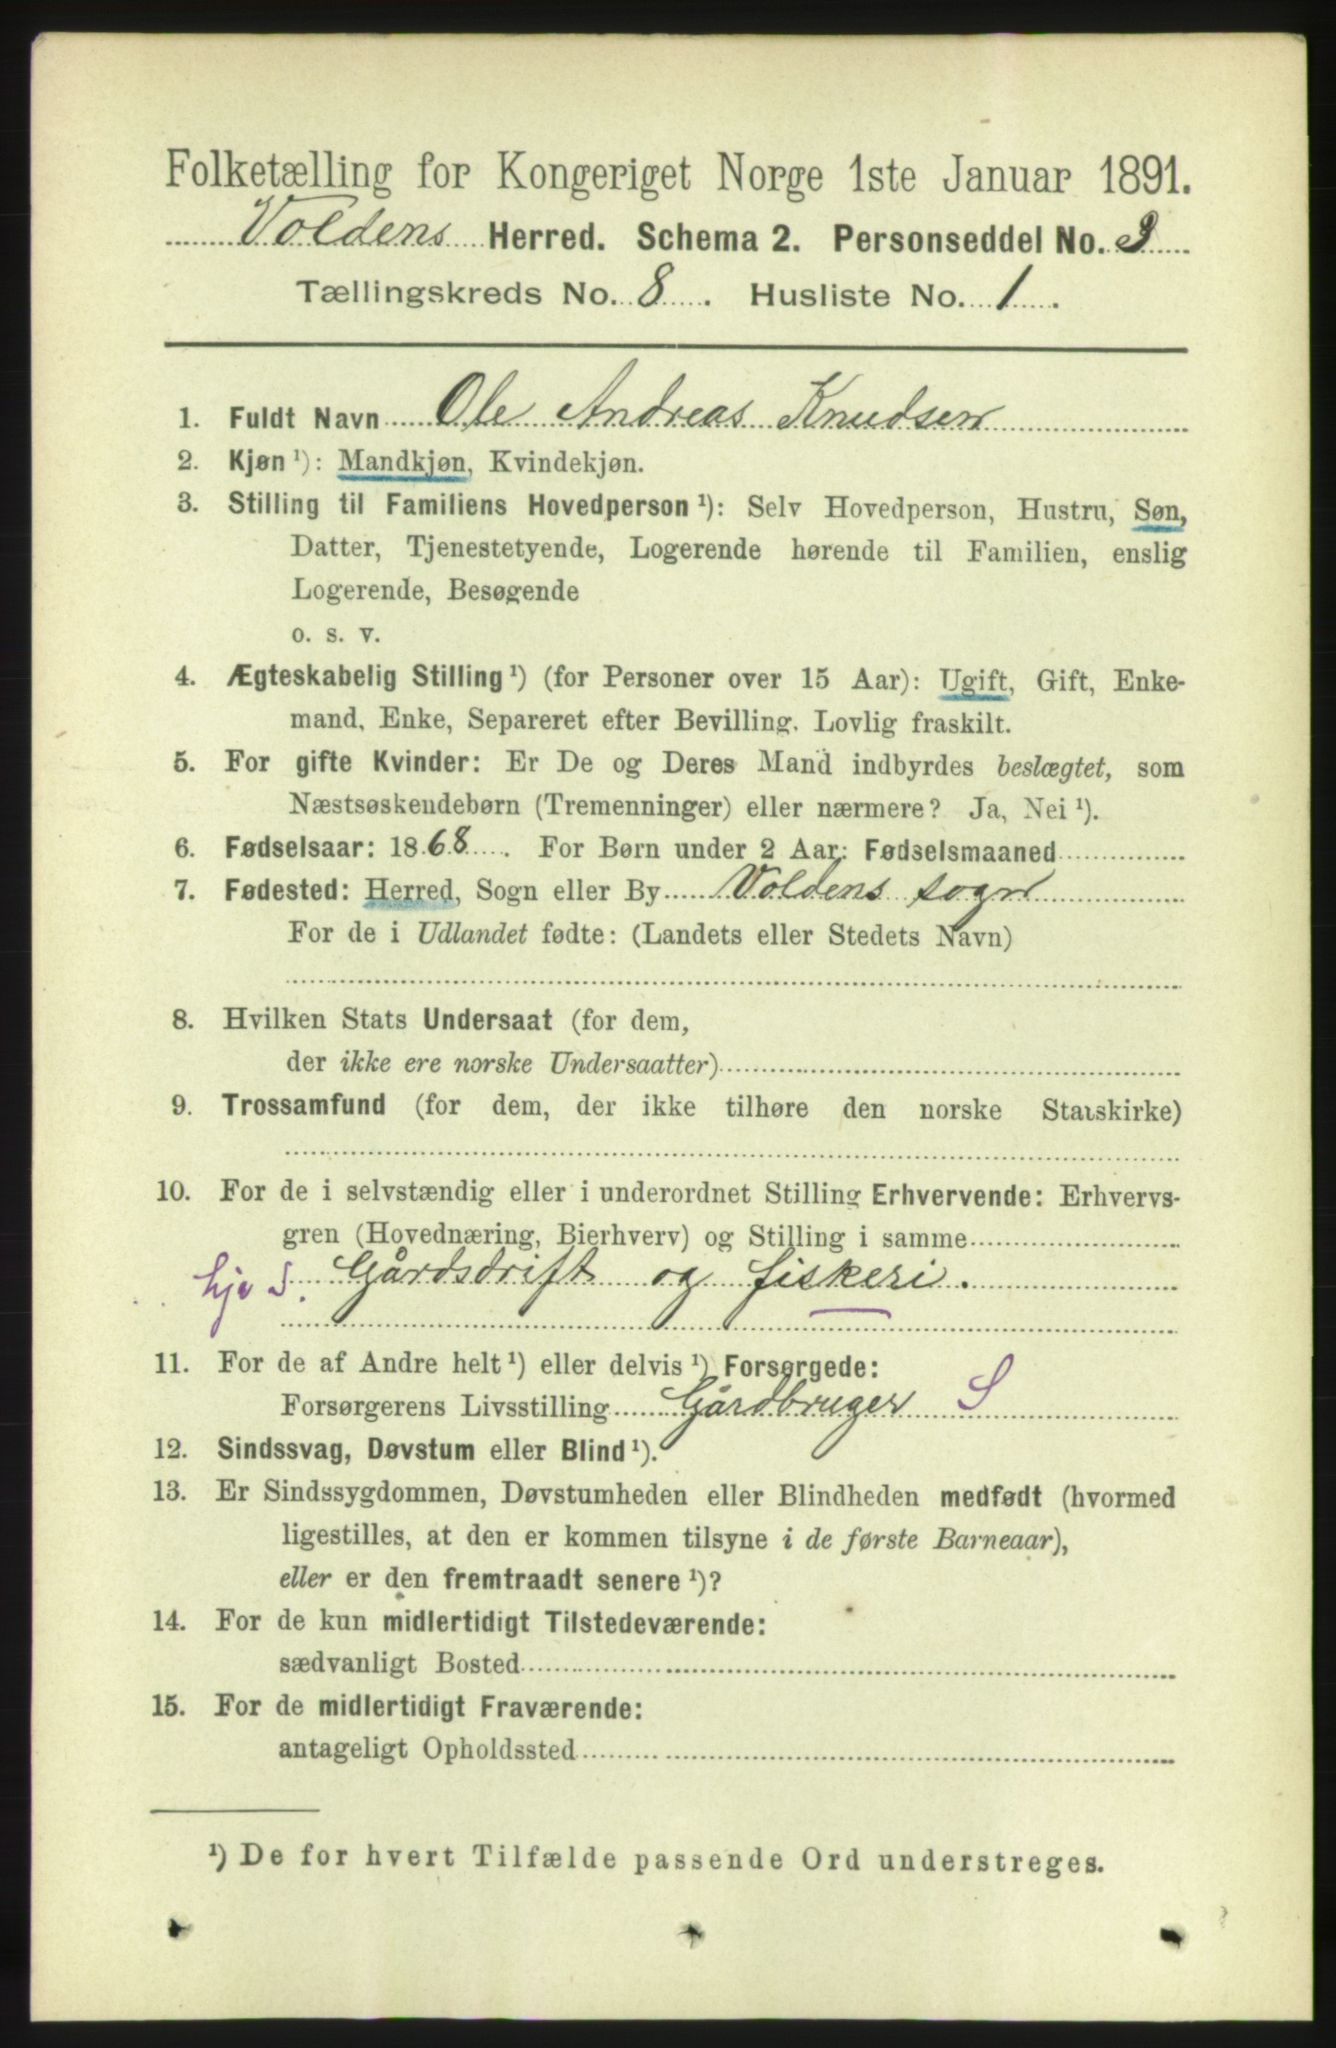 Folketælling for Kongeriget Norge 1ste Januar 1891.
Voldens Herred. Schema 2. Personseddel No. 3
Tællingskreds No. 8. Husliste No. 1.
1. Fuldt Navn Ole Andreas Knudsen
2. Kjøn ¹): Mandkjøn, Kvindekjøn.
3. Stilling til Familiens Hovedperson ¹): Selv Hovedperson, Hustru, Søn,
Datter, Tjenestetyende, Logerende hørende til Familien, enslig
Logerende, Besøgende
o. s. v.
4. Ægteskabelig Stilling ¹) (for Personer over 15 Aar): Ugift, Gift, Enke-
mand, Enke, Separeret efter Bevilling. Lovlig fraskilt.
5. For gifte Kvinder: Er De og Deres Mand indbyrdes beslægtet, som
Næstsøskendebørn (Tremenninger) eller nærmere? Ja, Nei ¹).
6. Fødselsaar: 1868. For Børn under 2 Aar: Fødselsmaaned
7. Fødested: Herred, Sogn eller By Voldens sogn
For de i Udlandet fødte: (Landets eller Stedets Navn)
8. Hvilken Stats Undersaat (for dem,
der ikke ere norske Undersaatter)
9. Trossamfund (for dem, der ikke tilhøre den norske Statskirke)
10. For de i selvstændig eller i underordnet Stilling Erhvervende: Erhvervs-
gren (Hovednæring, Bierhverv) og Stilling i samme
hje S. Gårdsdrift og fiskeri.
11. For de af Andre helt ¹) eller delvis ¹) Forsørgede:
Forsørgerens Livsstilling Gårdbruger S
12. Sindssvag, Døvstum eller Blind ¹).
13. Er Sindssygdommen, Døvstumheden eller Blindheden medfødt (hvormed
ligestilles, at den er kommen tilsyne i de første Barneaar),
eller er den fremtraadt senere ¹)?
14. For de kun midlertidigt Tilstedeværende:
sædvanligt Bosted
15. For de midlertidigt Fraværende:
antageligt Opholdssted
¹) De for hvert Tilfælde passende Ord understreges.